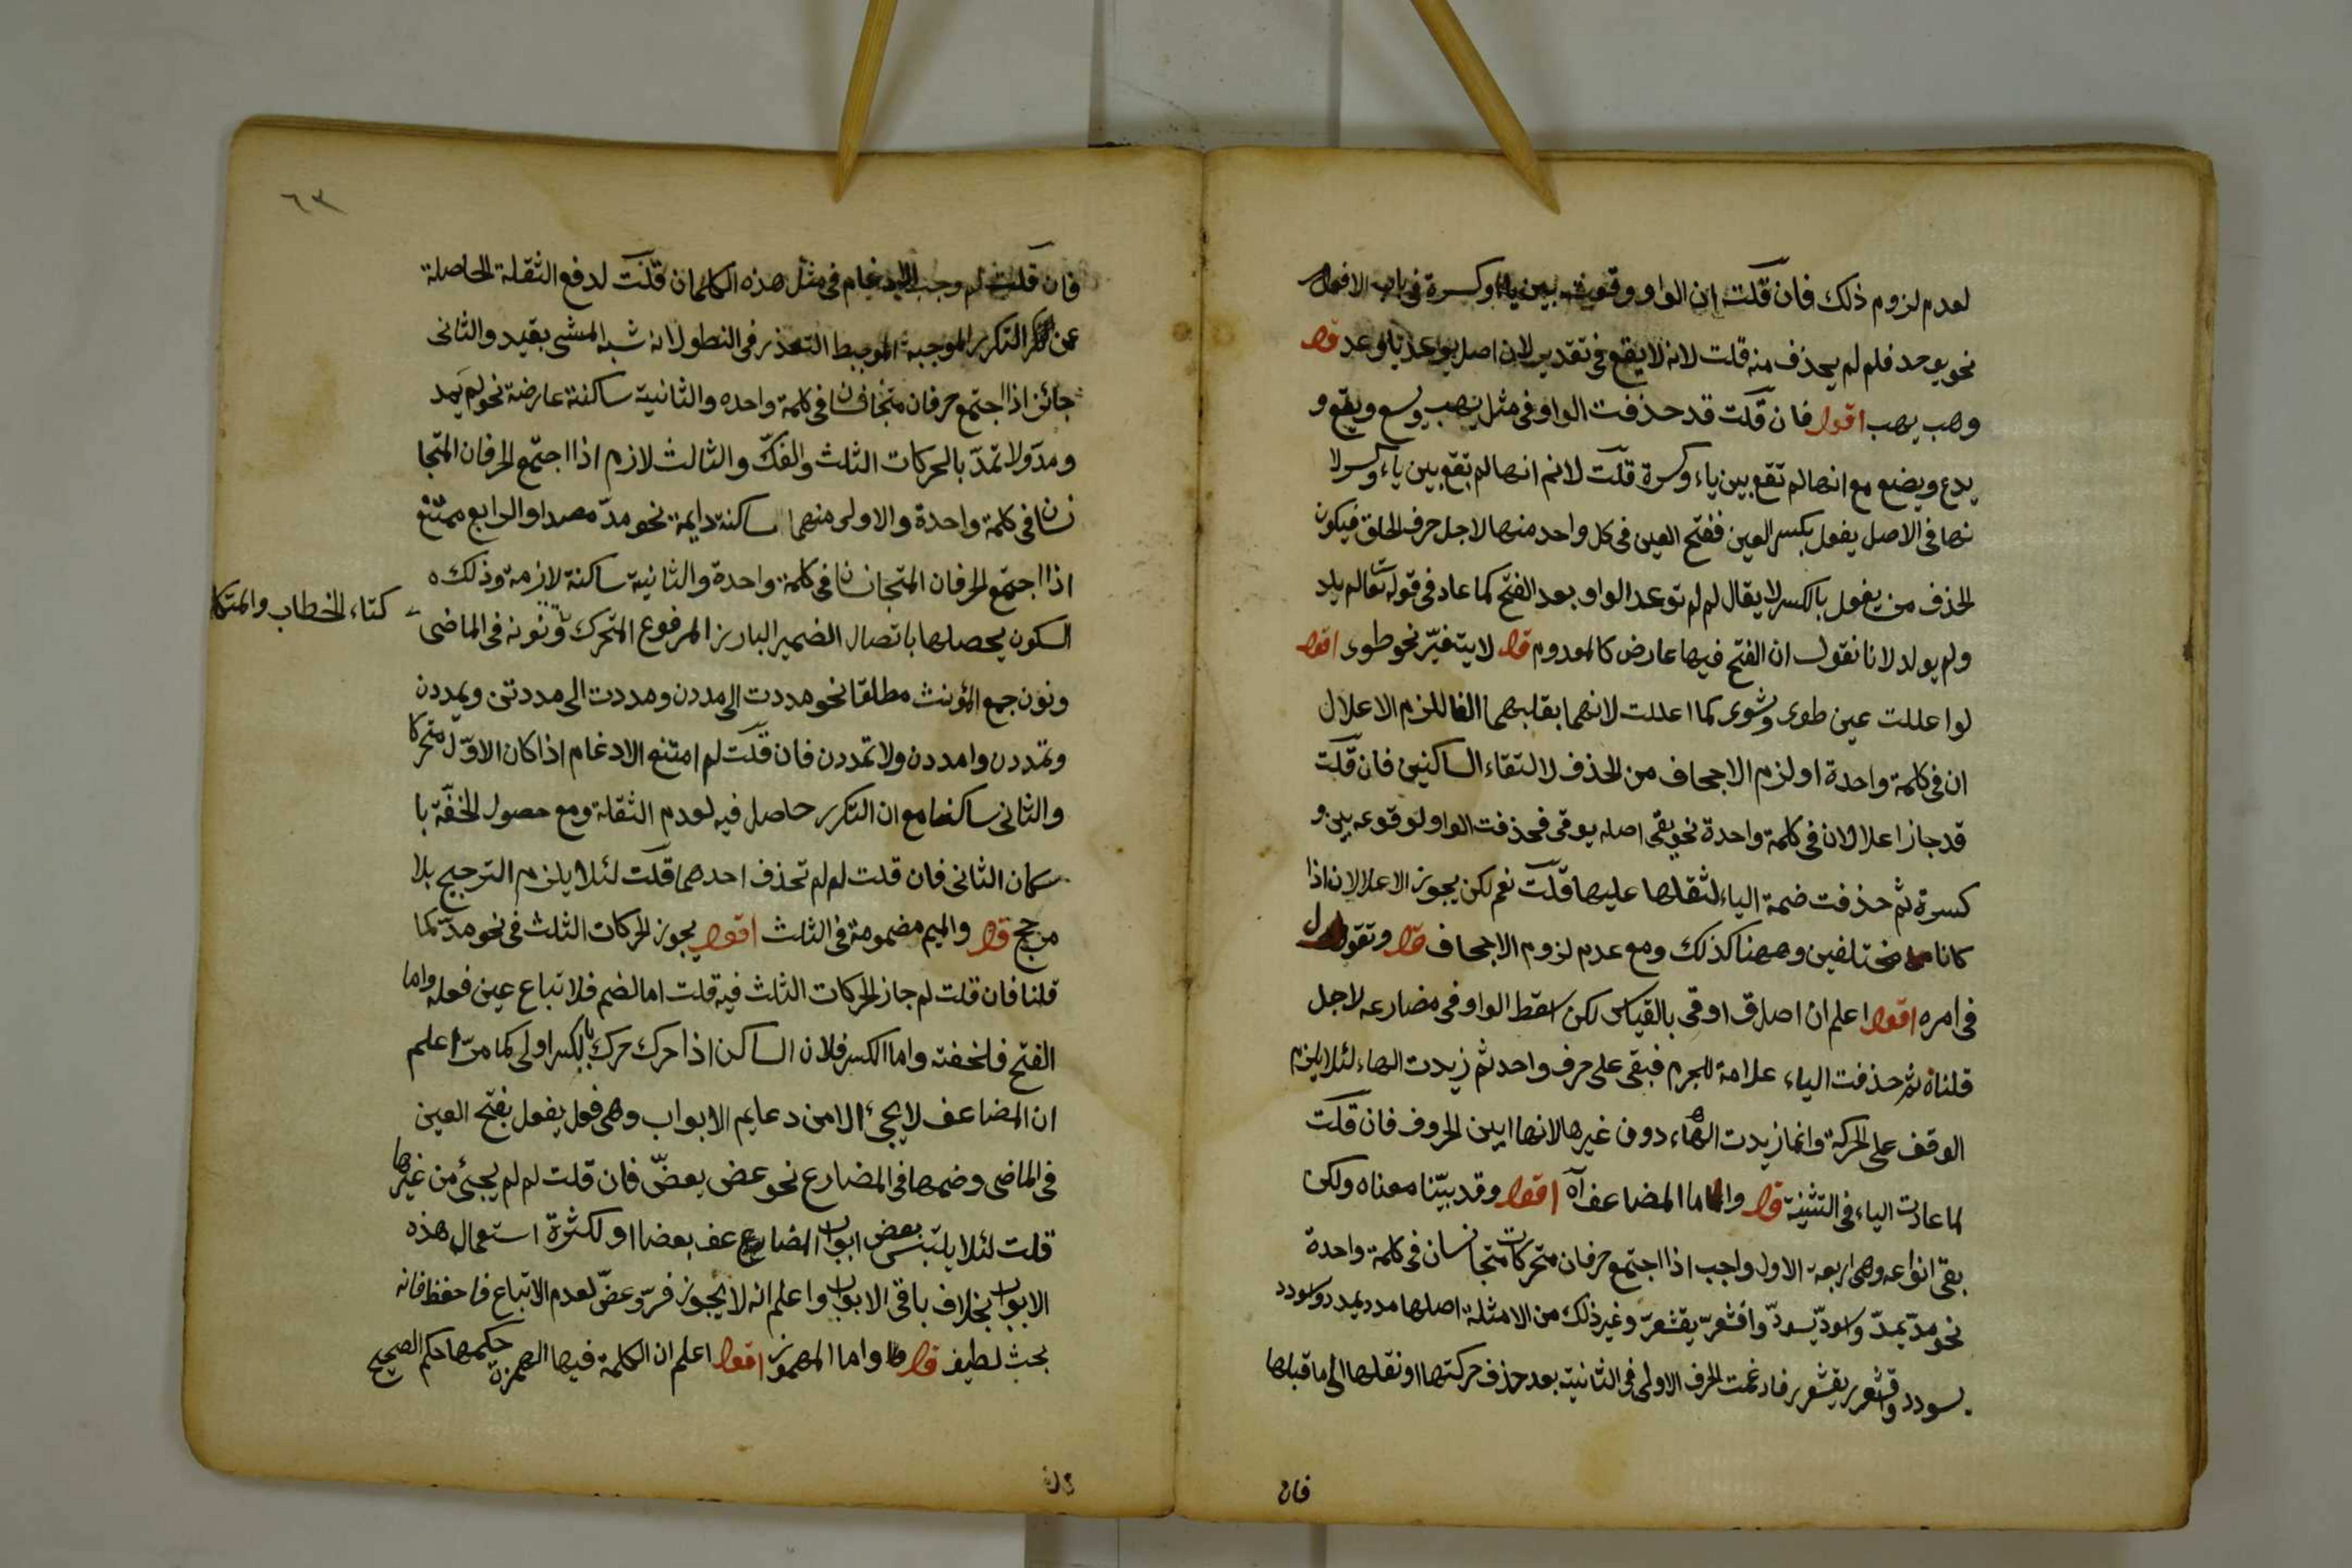 لعدم لزوم ذلك فان قلت ان الواو وقعت بين ياء وكسرة فى باب الافعال
نحو يوعد فلم لم يحذف منه قلت لانه لا يقع فى تقدير لان اصل يوعد يأوعد قوله
وهب يهب اقول فان قلت قد حذفت الواو فى مثل يهب ويسع ويقع و
يدع ويضع مع انها لم تقع بين ياء وكسرة قلت لانم انها لم تقع بين ياء وكسر لا
نها فى الاصل يفعل بكسر العين ففتح العين فى كل واحد منها لاجل حرف الحلق فيكون
الحذف من يفعل بالكسر لا يقال لم لم توعد الواو بعد الفتح كما عاد فى قوله تعالى لم يلد
ولم يولد لانا نقول ان الفتح فيها عارض كالمعدوم قوله لا يتغير نحو طوى اقول
لو اعللت عين طوى وشوى كما اعللت لانهما بقلبهما الفا للزم الاعلال
ان فى كلمة واحدة او لزم الاجحاف من الحذف لالتقاء الساكنين فان قلت
قد جاز اعلالان فى كلمة واحدة نحو يقى اصله يوقى فحذفت الواو لوقوعه بين و
كسرة ثم حذفت ضمة الياء لثقلها عليها قلت نعم لكن يجوز الاعلالان اذا
كانا مختلفين وههنا كذلك ومع عدم لزوم الاجحاف قوله وتقول
فى امره اقول اعلم ان اصل ق اوقى بالقياس لكن اسقط الواو فى مضارعه لاجل
قلناه ثم حذفت الياء علامة للجزم فبقى على حرف واحد ثم زيدت الهاء لئلا يلزم
الوقف على الحركة وانما زيدت الهاء دون غيرها لانها ابين الحروف فان قلت
لما عادت الياء فى التثنية قوله واما المضاعف آه اقول وقد بيّنا معناه ولكن
بقى انواعه وهى اربعة الاول واجب اذا اجتمع حرفان متحركات متجانسان فى كلمة واحدة
نحو مدّ يمدّ واسودّ يسودّ واقشعرّ يقشعرّ وغير ذلك من الامثلة اصلها مدد يمدد واسودد
يسودد واقشعرر يقشعرر فادغمت الحرف الاولى فى الثانية بعد حذف حركتها او نقلها الى ما قبلها
فان
٦٣
فان قلت لم وجب الادغام فى مثل هذه الكلمان قلت لدفع الثقلة الحاصلة
عن التكرير الموجبة التعذر فى النطق لانه شبه المشى بقيد والثانى
جائز اذا اجتمع حرفان متجانسان فى كلمة واحده والثانية ساكنة عارضة نحو لم يمد
ومدّ ولا تمدّ بالحركات الثلث والفكّ والثالث لازم اذا اجتمع الحرفان المتجا
نسان فى كلمة واحدة والاولى منهما ساكنة دايمة نحو مدّ مصدرا والرابع ممتنع
اذا اجتمع الحرفان المتجانسان فى كلمة واحدة والثانية ساكنة لازمة وذلك
السكون يحصلها باتصال الضمير البارز المرفوع المتحرك ونونه فى الماضى
كتاء الخطاب والمتكلم
ونون جمع المؤنث مطلقا نحو مددت الى مددن ومددت الى مددتن ويمددن
وتمددن وامددن ولا تمددن فان قلت لم امتنع الادغام اذا كان الاوّل متحركا
والثانى ساكنا مع ان التكرر حاصل فيه لعدم الثقلة ومع حصول الخفّة با
سكان الثانى فان قلت لم لم تحذف احدهما قلت لئلا يلزم الترجيح بلا
مرجح قوله والميم مضمومة فى الثلث اقول يجوز الحركات الثلث فى نحو مدّ كما
قلنا فان قلت لم جاز الحركات الثلث فيه قلت اما الضم فلاتباع عين فعله واما
الفتح فلخفته واما الكسر فلان الساكن اذا حرك حرك بالكسر اولى كما مرّ اعلم
ان المضاعف لا يجىء الا من دعايم الابواب وهى فعل يفعل بفتح العين
فى الماضى وضمها فى المضارع نحو عض يعضّ فان قلت لم لم يجئ من غيرها
قلت لئلا يلتبس بعض ابواب المضاعف بعضا او لكثرة استعمال هذه
الابواب بخلاف باقى الابواب واعلم انه لا يجوز فرّ وعضّ لعدم الاتباع فاحفظ فانه
بحث لطيف قوله واما المهموز اقول اعلم ان الكلمة فيها الهمزة حكمها حكم الصحيح